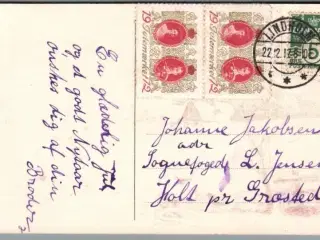 En glædelig Jul
og et godt Nytaar
ønskes dig af din
Broder
19 Julemærket 12
19 Julemærket 12
LINDHOLM
22.12.12.
Johanne Jakobsen
adr
Sognefoged L. Jensen
Holt pr Græsted